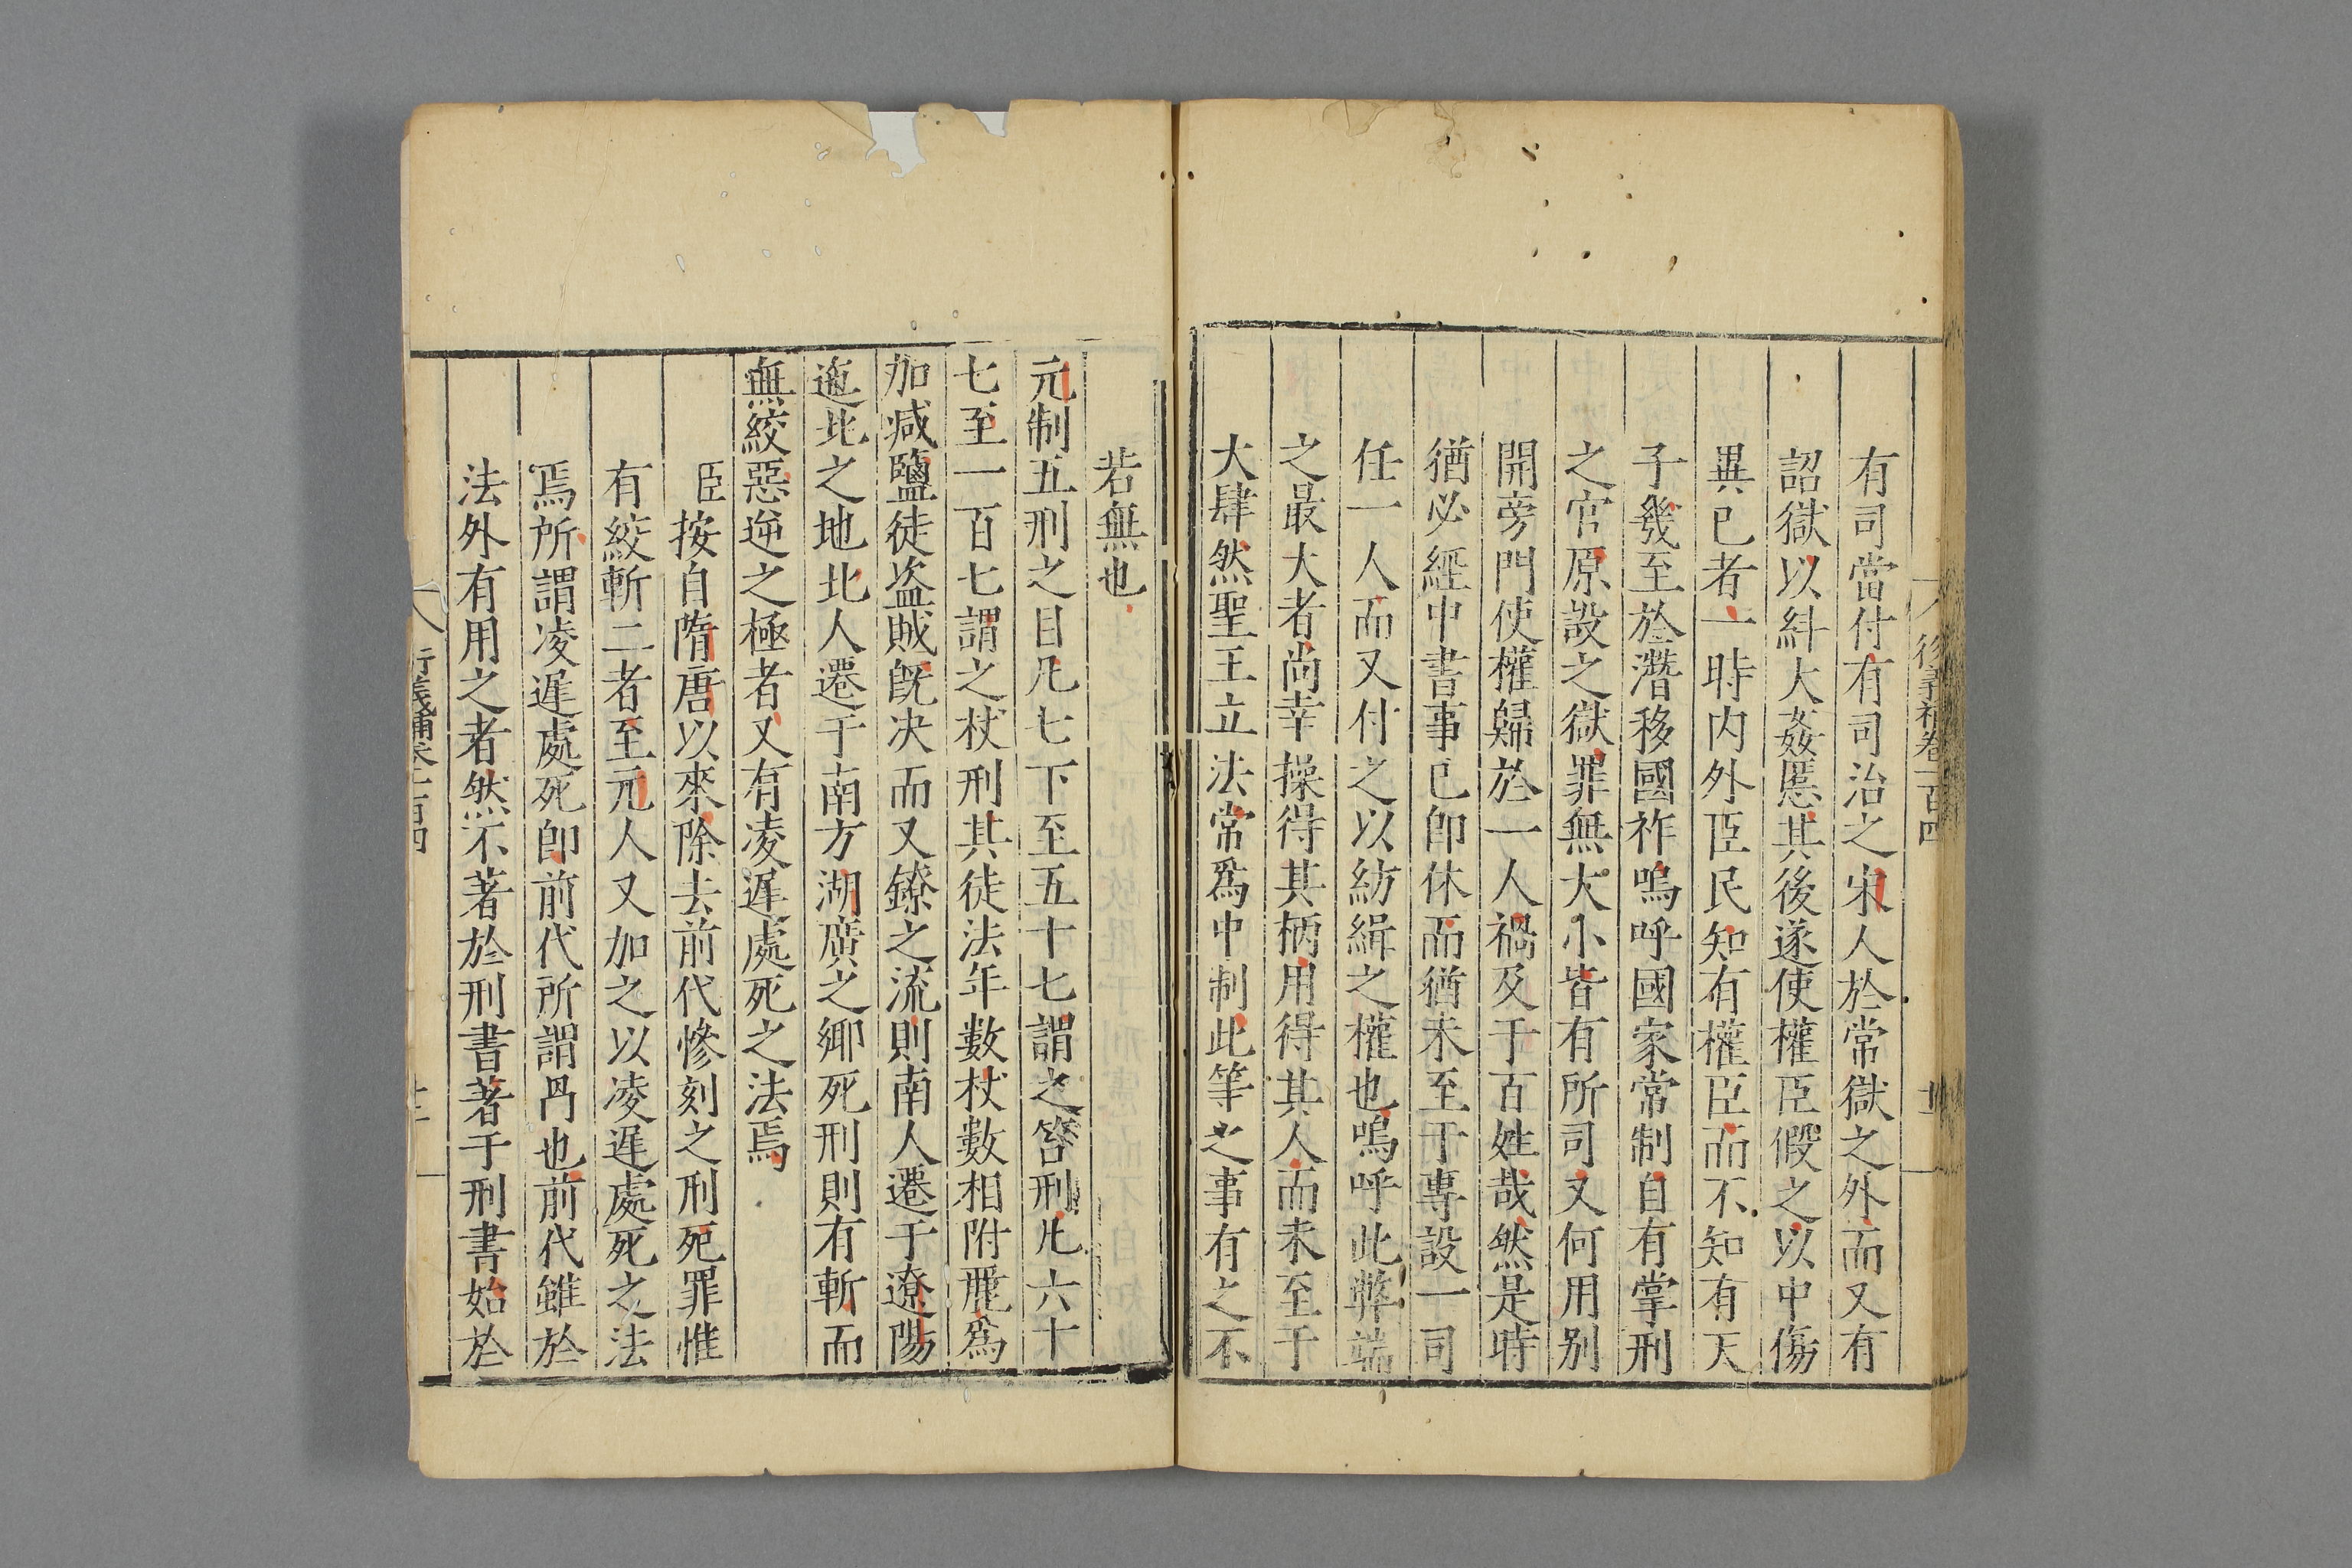 有司當付有司治之宋人於常獄之外而又有
詔獄以糾大姦慝其後遂使權臣假之以中傷
異已者一時内外臣民知有權臣而不知有天
子幾至於潛移國祚嗚呼國家常制自有掌刑
之官原設之獄罪無大小皆有所司又何用别
開旁門使權歸於一人禍及于百姓哉然是時
猶必經中書事已即休而猶未至于專設一司
任一人而又付之以紡緝之權也嗚呼此弊端
之最大者尚幸操得其柄用得其人而未至于
大肆然聖王立法常爲中制此等之事有之不
若無也
元制五刑之目凡七下至五十七謂之笞刑凡六十
七至一百七謂之杖刑其徒法年數杖數相附麗爲
加减鹽徒盗賊既决而又鐐之流則南人遷于遼陽
迤北之地北人遷于南方湖廣之鄉死刑則有斬而
無絞惡逆之極者又有凌遲處死之法焉
臣按自隋唐以來除去前代慘刻之刑死罪惟
有絞斬二者至元人又加之以凌遲處死之法
焉所謂凌遲處死即前代所謂冎也前代雖於
法外有用之者然不著於刑書著于刑書始於